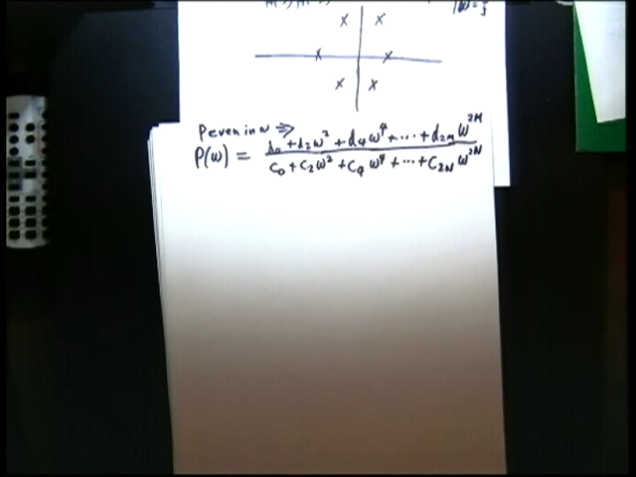 |ω = s/j
x x
x x
x x
P even in ω ⇒
P(ω) = (d₀ + d₂ω² + d₄ω⁴ + ... + d₂ₘω²ᴹ) / (c₀ + c₂ω² + c₄ω⁴ + ... + c₂ₙω²ᴺ)